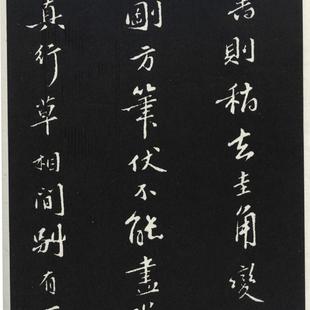 書則秣去圭角變
剛方筆伏不能盡
真行草相間別有